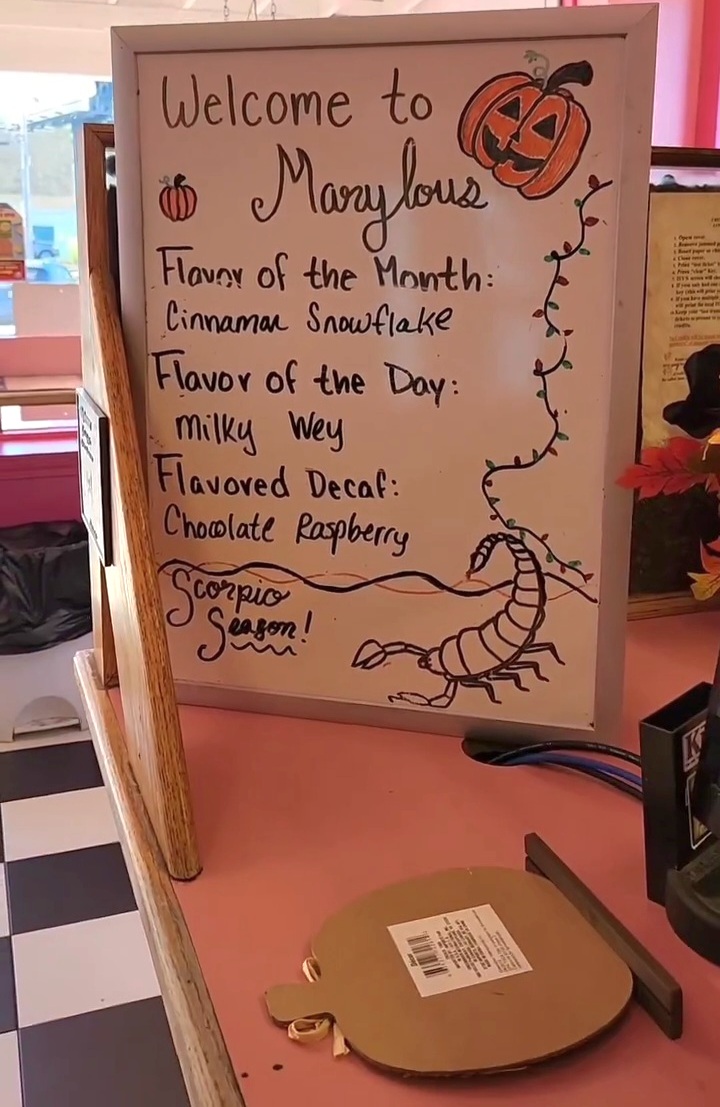 Welcome to
Marylous
Flavor of the Month:
Cinnamon Snowflake
Flavor of the Day:
milky Wey
Flavored Decaf:
Chocolate Raspberry
Scorpio
Season!